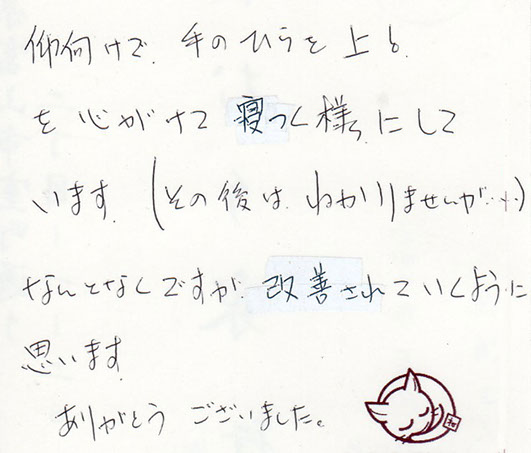 仰向けで、手のひらを上に、
を心がけて寝つく様にして
います。(その後は、わかりませんが…)
なんとなくですが、改善されていくように
思います
ありがとうございました。